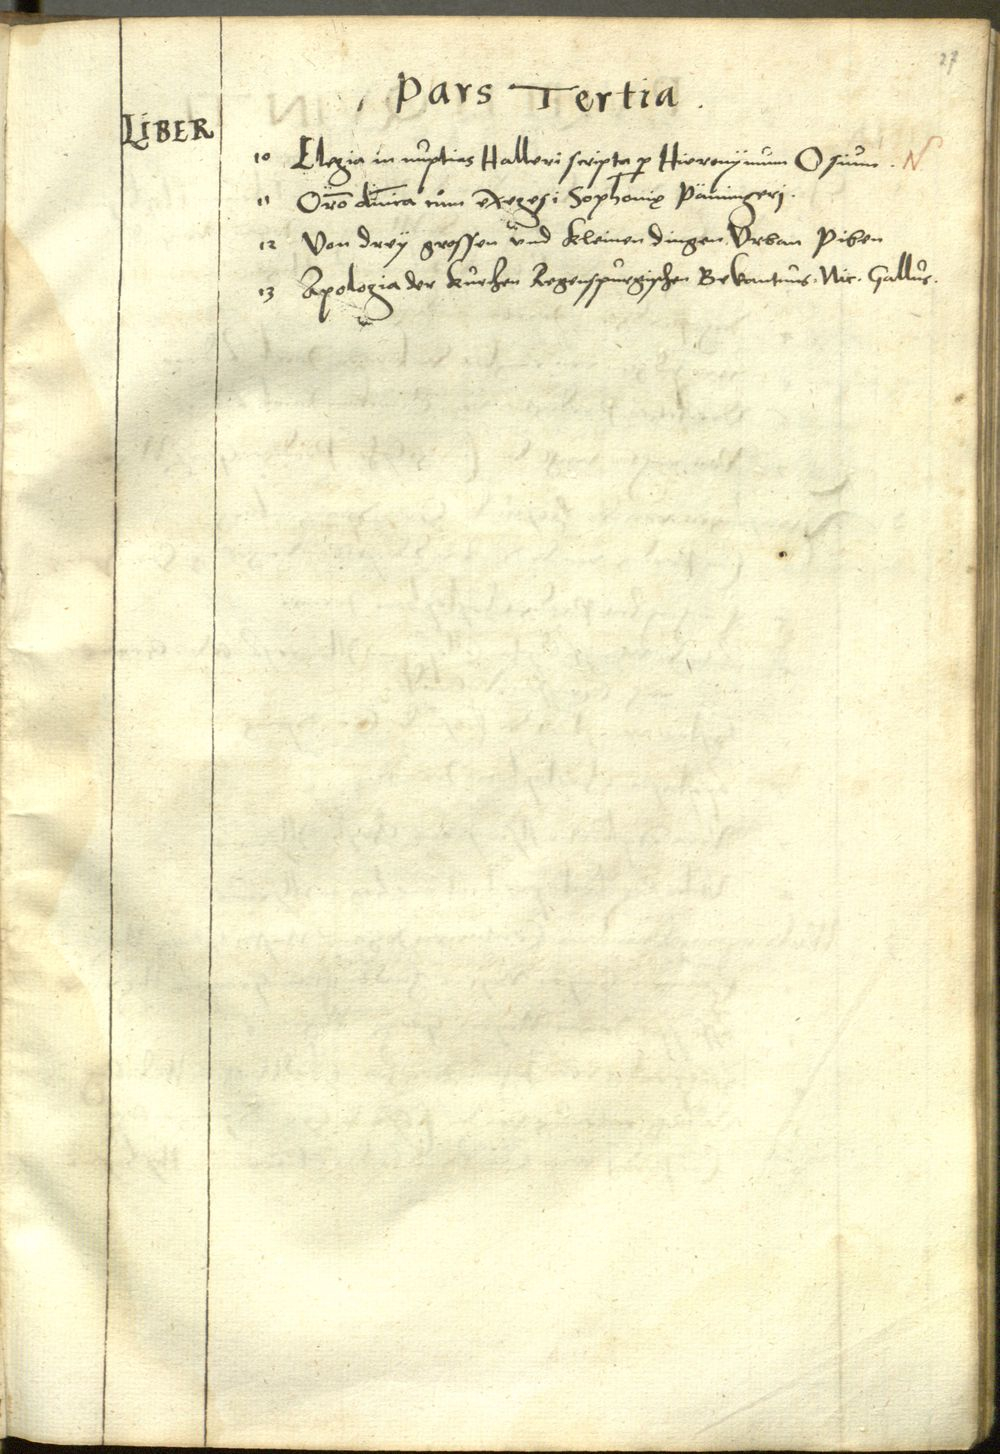 27
Pars Tertia.
LIBER
10 Elegia in nuptias Halleri scripta p Hieronÿmum Osium. N
11 Orõ dnica cum exegesi Sophoniæ Päningeri.
12 Von dreÿ grossen und kleinen dingen Vrban Piben
13 Apologia der Kirchen Regenspurgischen Bekantnus. Nic. Gallus.